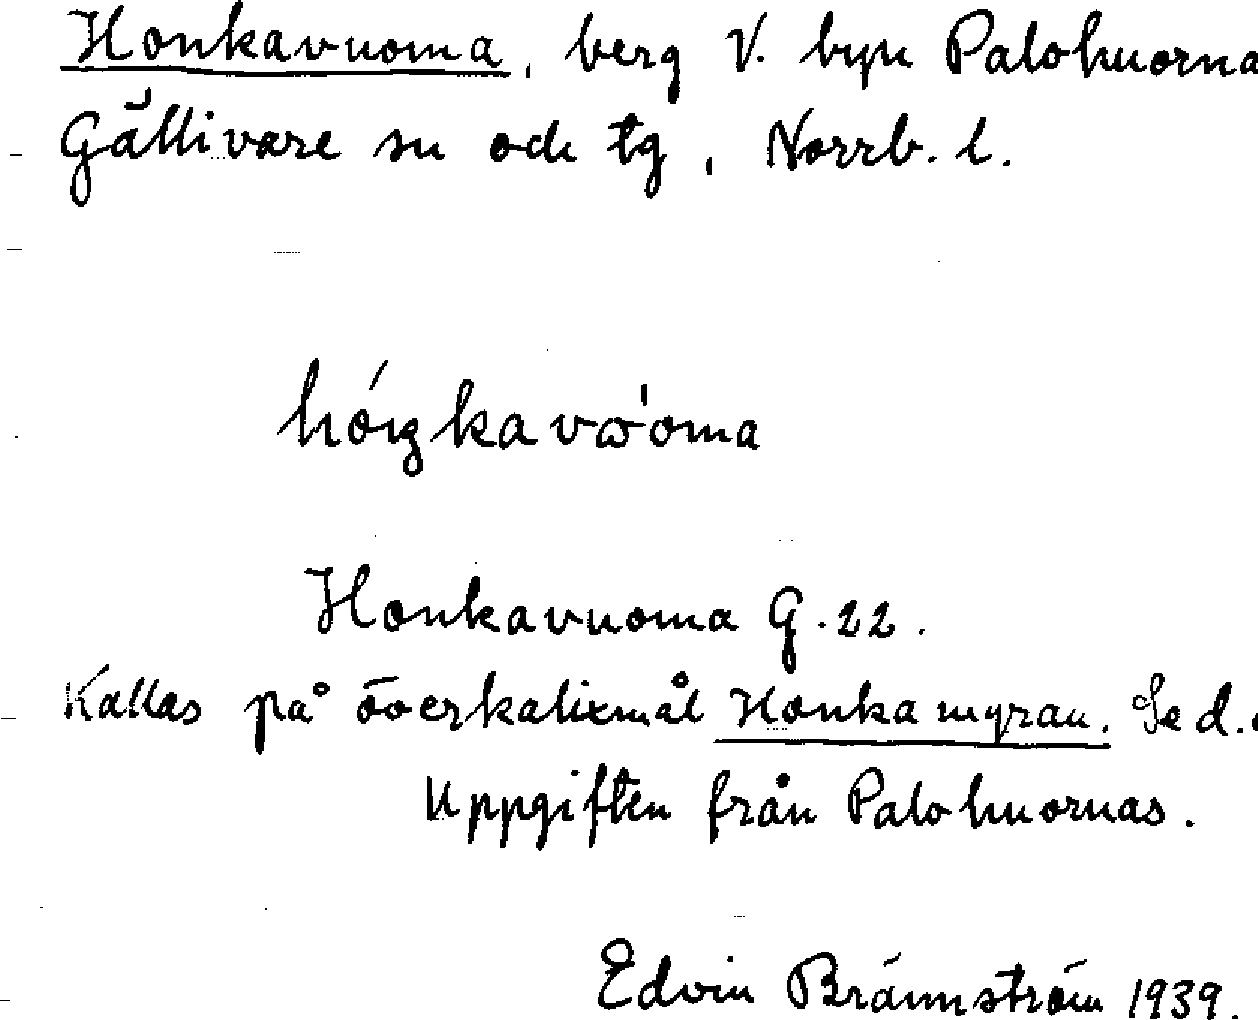 Honkavuoma, berg V. byn Palohuorna
Gällivare sn och tg, Norrb. l.
hóŋkavω'oma
Honkavuoma G.22.
Kallas på överkalixmål Honkamyran. Se d.o
Uppgiften från Palohuornas.
Edvin Brännström 1939.